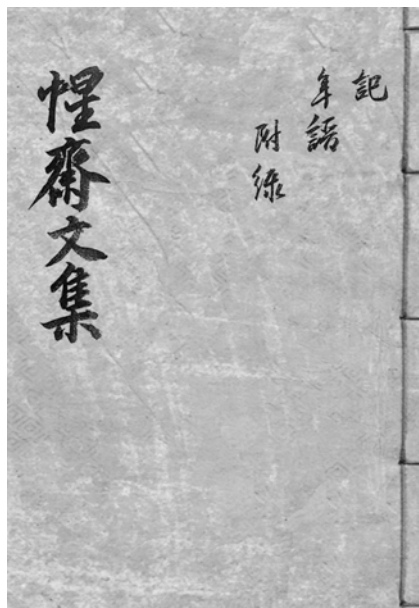 記
年譜
附錄
惺齋文集